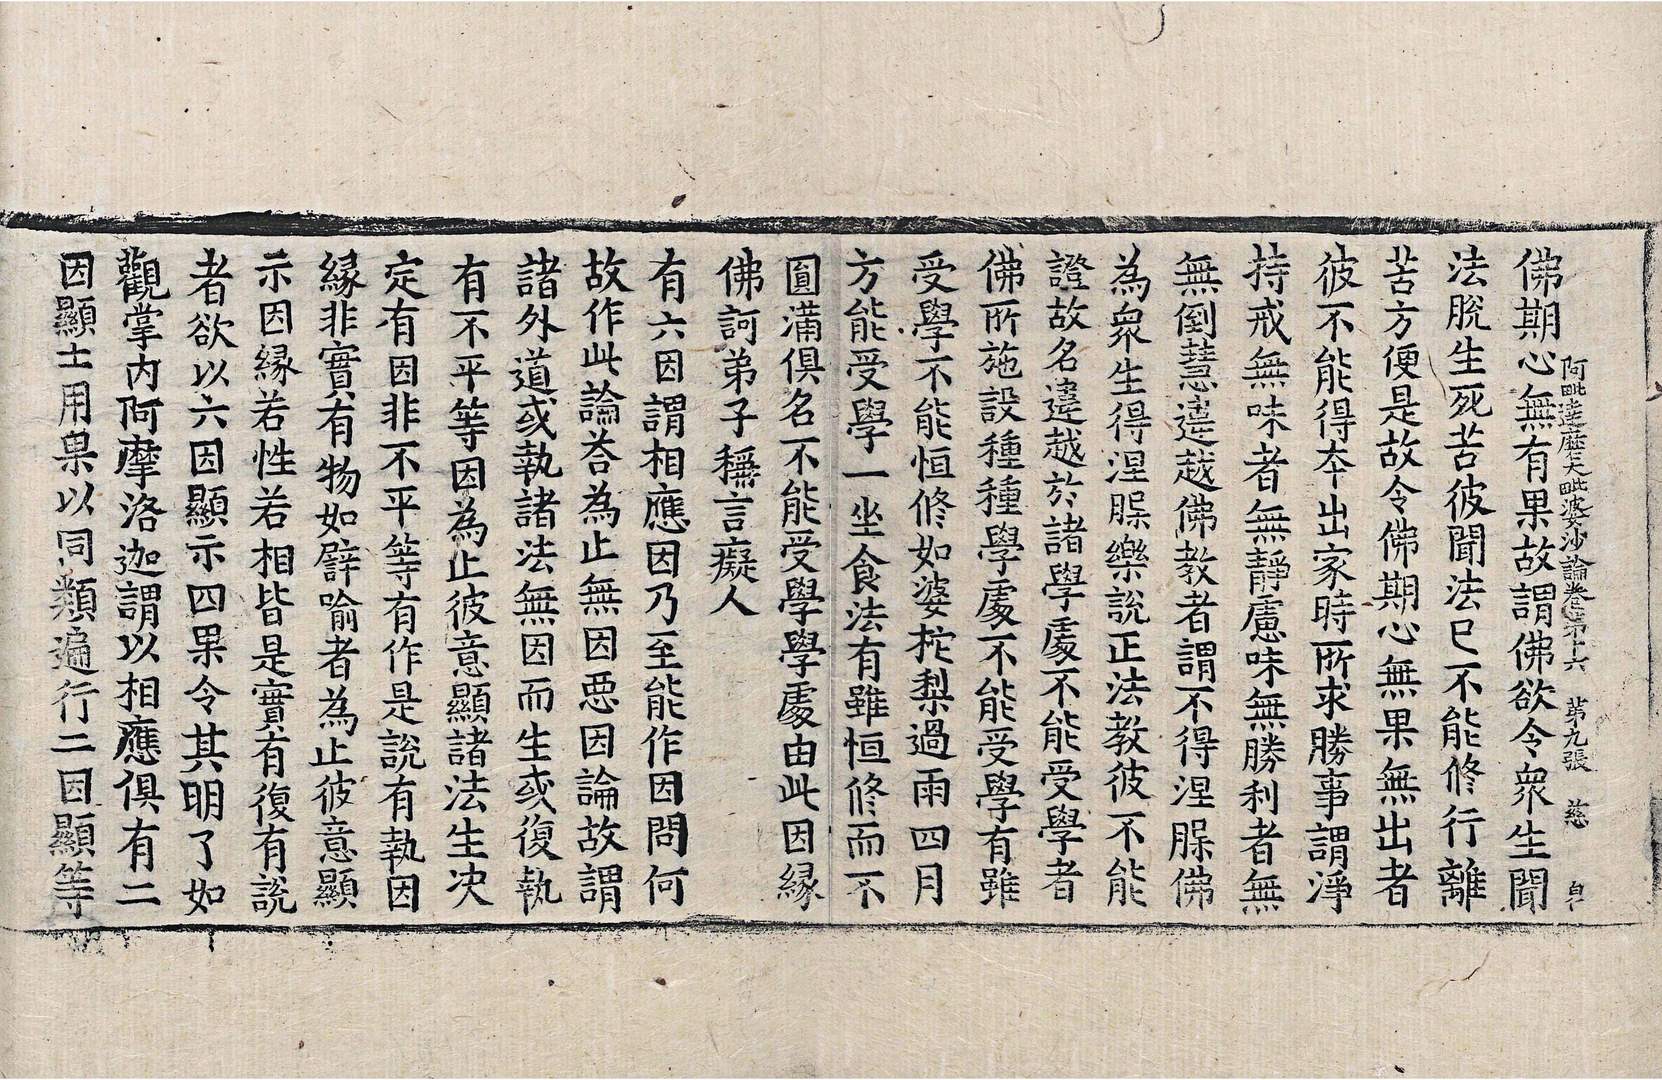 阿毗達磨大毗婆沙論卷第十六 第九張 慈
佛期心無有果故謂佛欲令衆生聞
法脫生死苦彼聞法已不能修行離
苦方便是故令佛期心無果無出者
彼不能得夲出家時所求勝事謂淨
持戒無味者無靜慮味無勝利者無
無倒慧違越佛教者謂不得涅槃佛
為衆生得涅槃樂說正法教彼不能
證故名違越於諸學處不能受學者
佛所施設種種學處不能受學有雖
受學不能恒修如婆柁梨過雨四月
方能受學一坐食法有雖恒修而不
圓滿俱名不能受學學處由此因緣
佛訶弟子稱言癡人
有六因謂相應因乃至能作因問何
故作此論荅為止無因惡因論故謂
諸外道或執諸法無因而生或復執
有不平等因為止彼意顯諸法生决
定有因非不平等有作是說有執因
緣非實有物如譬喻者為止彼意顯
示因緣若性若相皆是實有復有說
者欲以六因顯示四果令其明了如
觀掌內阿摩洛迦謂以相應俱有二
因顯士用果以同類遍行二因顯等